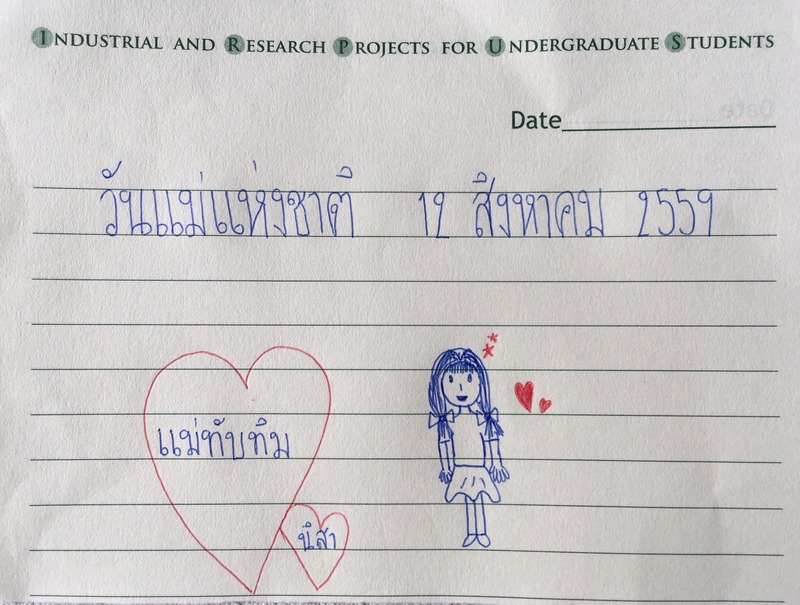 INDUSTRIAL AND RESEARCH PROJECTS FOR UNDERGRADUATE STUDENTS
Date
วันแม่แห่งชาติ 12 สิงหาคม 2559
แม่ทับทิม
นิสา